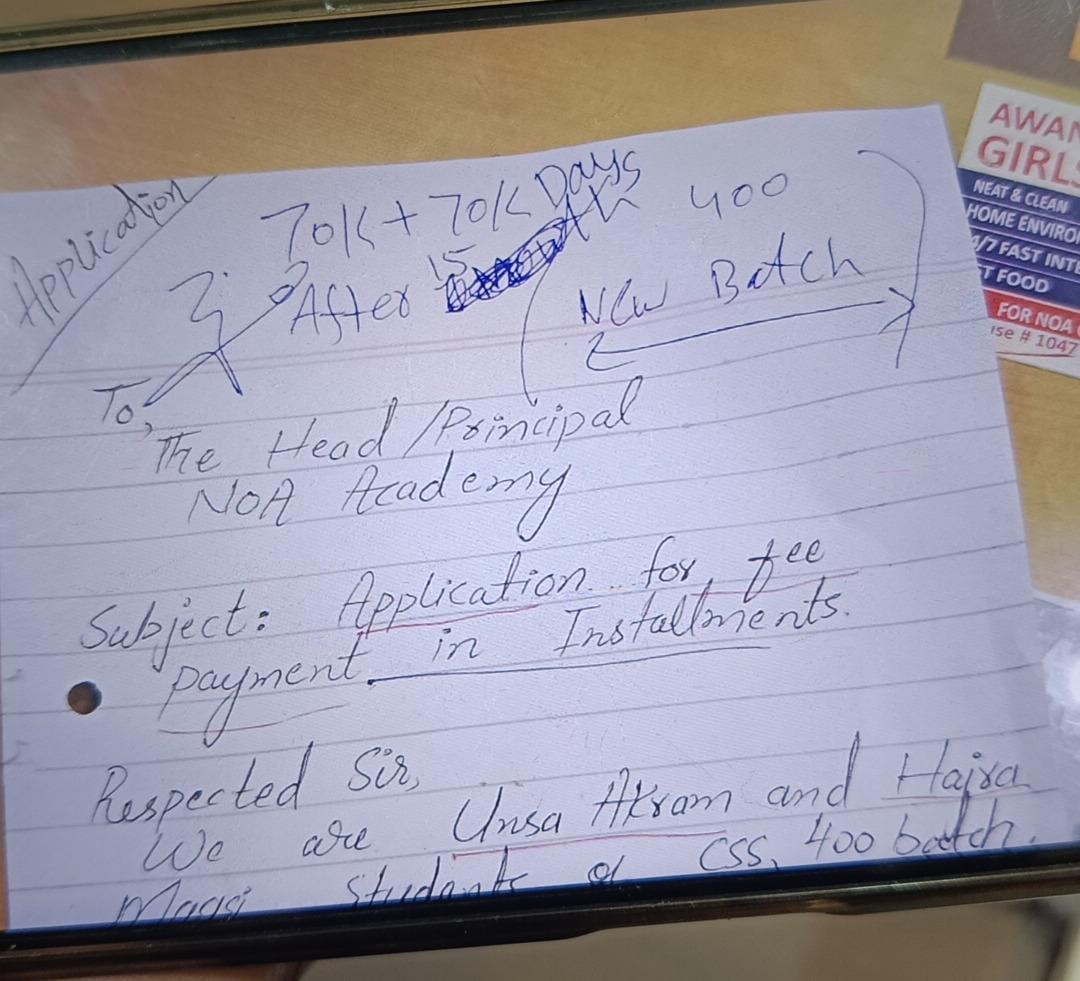 Application
70K + 70K Days 400
After 15
(New Batch)
To,
The Head/Principal
NOA Academy
Subject: Application for fee
payment in Installments.
Respected Sir,
We are Unsa Akram and Hajra
Students of CSS, 400 batch.
AWAN
GIRLS
NEAT & CLEAN
HOME ENVIRO
/7 FAST INTE
T FOOD
FOR NOA
se # 1047